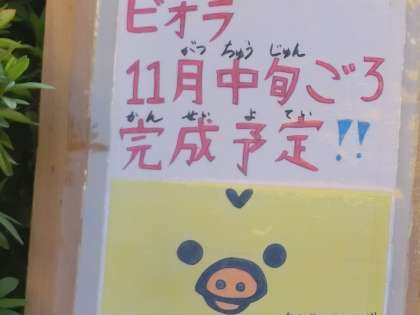 ビオラ
がつ ちゅう じゅん
11月中旬ごろ
かん せい よ てい
完成予定!!